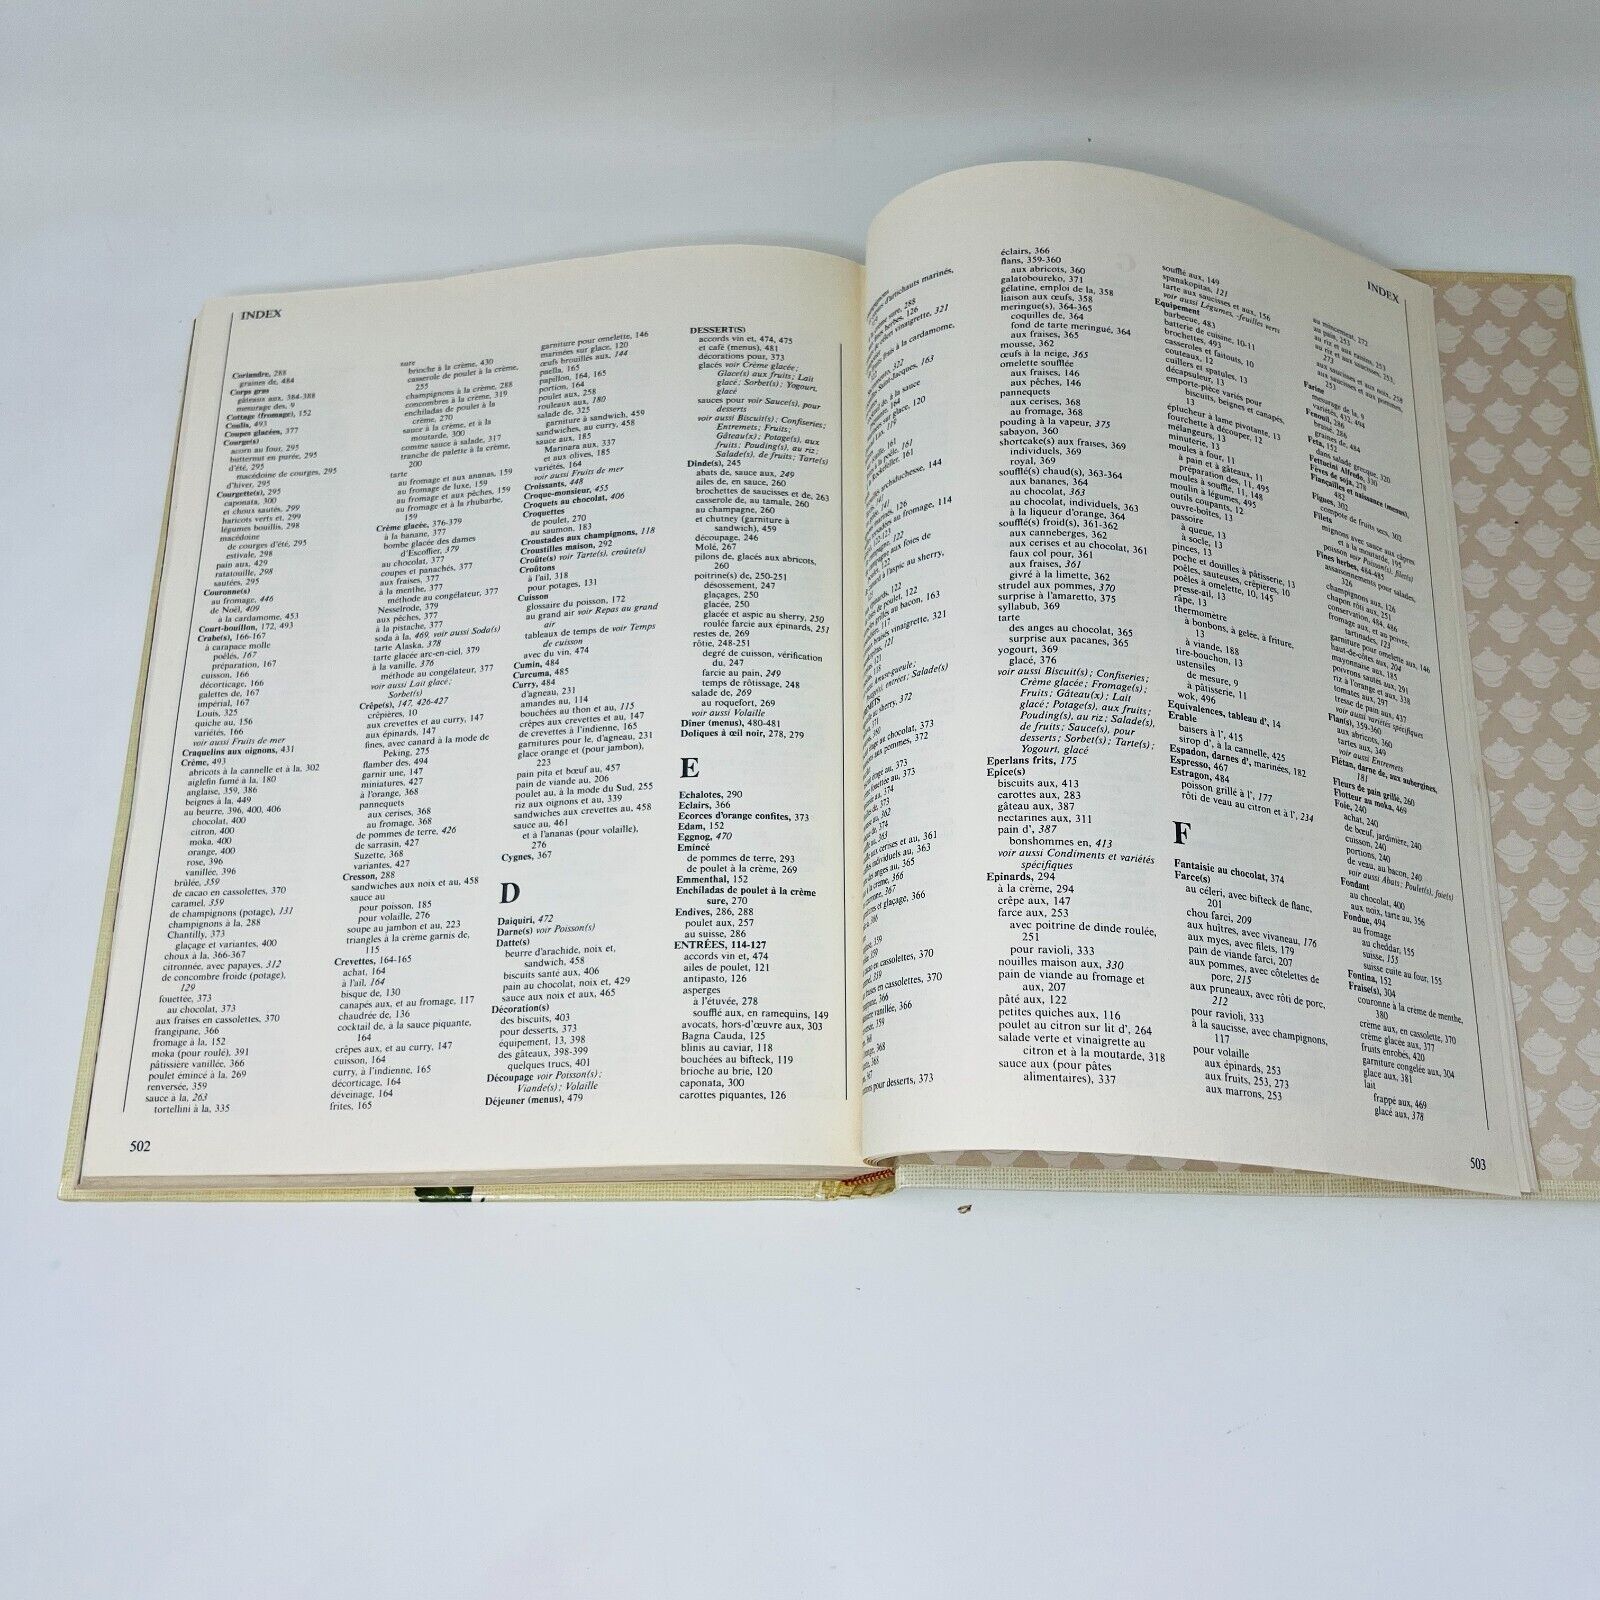 INDEX
Coriandre, 288
graines de, 484
Corps gras
gâteaux aux, 384-388
mesurage des, 9
Cottage (fromage), 152
Coulis, 493
Coupes glacées, 377
Courge(s)
acorn au four, 295
butternut en purée, 295
d'été, 295
macédoine de courges, 295
d'hiver, 295
Courgette(s), 295
caponata, 300
et choux sautés, 299
haricots verts et, 299
légumes bouillis, 298
macédoine
de courges d'été, 295
estivale, 298
pain aux, 429
ratatouille, 298
sautées, 295
Couronne(s)
au fromage, 446
de Noël, 409
à la cardamome, 453
Court-bouillon, 172, 493
Crabe(s), 166-167
à carapace molle
poêlés, 167
préparation, 167
cuisson, 166
décorticage, 166
galettes de, 167
impérial, 167
Louis, 325
quiche au, 156
variétés, 166
voir aussi Fruits de mer
Craquelins aux oignons, 431
Crème, 493
abricots à la cannelle et à la, 302
aiglefin fumé à la, 180
anglaise, 359, 386
beignes à la, 449
au beurre, 396, 400, 406
chocolat, 400
citron, 400
moka, 400
orange, 400
rose, 396
vanillée, 396
brûlée, 359
de cacao en cassolettes, 370
caramel, 359
de champignons (potage), 131
champignons à la, 288
Chantilly, 373
glaçage et variantes, 400
choux à la, 366-367
citronnée, avec papayes, 312
de concombre froide (potage),
129
fouettée, 373
au chocolat, 373
aux fraises en cassolettes, 370
frangipane, 366
fromage à la, 152
moka (pour roulé), 391
pâtissière vanillée, 366
poulet émincé à la, 269
renversée, 359
sauce à la, 263
tortellini à la, 335
sure
brioche à la crème, 430
casserole de poulet à la crème,
255
champignons à la crème, 288
concombres à la crème, 319
enchiladas de poulet à la
crème, 270
sauce à la crème, et à la
moutarde, 300
comme sauce à salade, 317
tranche de palette à la crème,
200
tarte
au fromage et aux ananas, 159
au fromage de luxe, 159
au fromage et aux pêches, 159
au fromage et à la rhubarbe,
159
Crème glacée, 376-379
à la banane, 377
bombe glacée des dames
d'Escoffier, 379
au chocolat, 377
coupes et panachés, 377
aux fraises, 377
à la menthe, 377
méthode au congélateur, 377
Nesselrode, 379
aux pêches, 377
à la pistache, 377
soda à la, 469, voir aussi Soda(s)
tarte Alaska, 378
tarte glacée arc-en-ciel, 379
à la vanille, 376
méthode au congélateur, 377
voir aussi Lait glacé;
Sorbet(s)
Crêpe(s), 147, 426-427
crêpières, 10
aux crevettes et au curry, 147
aux épinards, 147
fines, avec canard à la mode de
Peking, 275
flamber des, 494
garnir une, 147
miniatures, 427
à l'orange, 368
pannequets
aux cerises, 368
au fromage, 368
de pommes de terre, 426
de sarrasin, 427
Suzette, 368
variantes, 427
Cresson, 288
sandwiches aux noix et au, 458
sauce au
pour poisson, 185
pour volaille, 276
soupe au jambon et au, 223
triangles à la crème garnis de,
115
Crevettes, 164-165
achat, 164
à l'ail, 164
bisque de, 130
canapés aux, et au fromage, 117
chaudrée de, 136
cocktail de, à la sauce piquante,
164
crêpes aux, et au curry, 147
cuisson, 164
curry, à l'indienne, 165
décorticage, 164
déveinage, 164
frites, 165
garniture pour omelette, 146
marinées sur glace, 120
œufs brouillés aux, 144
paella, 165
papillon, 164, 165
portion, 164
poulet aux, 258
rouleaux aux, 180
salade de, 325
garniture à sandwich, 459
sandwiches, au curry, 458
sauce aux, 185
Marinara aux, 337
et aux olives, 185
variétés, 164
voir aussi Fruits de mer
Croissants, 448
Croque-monsieur, 455
Croquets au chocolat, 406
Croquettes
de poulet, 270
au saumon, 183
Croustades aux champignons, 118
Croustilles maison, 292
Croûte(s) voir Tarte(s), croûte(s)
Croûtons
à l'ail, 318
pour potages, 131
Cuisson
glossaire du poisson, 172
au grand air voir Repas au grand
air
tableaux de temps de voir Temps
de cuisson
avec du vin, 474
Cumin, 484
Curcuma, 485
Curry, 484
d'agneau, 231
amandes au, 114
bouchées au thon et au, 115
crêpes aux crevettes et au, 147
de crevettes à l'indienne, 165
garnitures pour le, d'agneau, 231
glace orange et (pour jambon),
223
pain pita et bœuf au, 457
pain de viande au, 206
poulet au, à la mode du Sud, 255
riz aux oignons et au, 339
sandwiches aux crevettes et au, 458
sauce au, 461
et à l'ananas (pour volaille),
276
Cygnes, 367
D
Daiquiri, 472
Darne(s) voir Poisson(s)
Datte(s)
beurre d'arachide, noix et,
sandwich, 458
biscuits santé aux, 406
pain au chocolat, noix et, 429
sauce aux noix et aux, 465
Décoration(s)
des biscuits, 403
pour desserts, 373
équipement, 13, 398
des gâteaux, 398-399
quelques trucs, 401
Découpage voir Poisson(s);
Viande(s); Volaille
Déjeuner (menus), 479
DESSERT(S)
accords vin et, 474, 475
et café (menus), 481
décorations pour, 373
glacés voir Crème glacée;
Glace(s) aux fruits; Lait
glacé; Sorbet(s); Yogourt,
glacé
sauces pour voir Sauce(s), pour
desserts
voir aussi Biscuit(s); Confiseries;
Entremets; Fruits;
Gâteau(x); Potage(s), aux
fruits; Pouding(s), au riz;
Salade(s), de fruits; Tarte(s)
Dinde(s), 245
abats de, sauce aux, 249
ailes de, en sauce, 260
brochettes de saucisses et de, 263
casserole de, au tamale, 260
au champagne, 260
et chutney (garniture à
sandwich), 459
découpage, 246
Molé, 267
pilons de, glacés aux abricots,
260
poitrine(s) de, 250-251
désossement, 247
glaçages, 250
glacée, 250
glacée et aspic au sherry, 250
roulée farcie aux épinards, 251
restes de, 269
rôtie, 248-251
degré de cuisson, vérification
du, 247
farcie au pain, 249
temps de rôtissage, 248
salade de, 269
au roquefort, 269
voir aussi Volaille
Dîner (menus), 480-481
Doliques à œil noir, 278, 279
E
Echalotes, 290
Eclairs, 366
Ecorces d'orange confites, 373
Edam, 152
Eggnog, 470
Emincé
de pommes de terre, 293
de poulet à la crème, 269
Emmenthal, 152
Enchiladas de poulet à la crème
sure, 270
Endives, 286, 288
poulet aux, 257
au suisse, 286
ENTRÉES, 114-127
accords vin et, 474
ailes de poulet, 121
antipasto, 126
asperges
à l'étuvée, 278
soufflé aux, en ramequins, 149
avocats, hors-d'œuvre aux, 303
Bagna Cauda, 125
blinis au caviar, 118
bouchées au bifteck, 119
brioche au brie, 120
caponata, 300
carottes piquantes, 126
502
INDEX
éclairs, 366
flans, 359-360
aux abricots, 360
galatoboureko, 371
gélatine, emploi de la, 358
liaison aux œufs, 358
meringue(s), 364-365
coquilles de, 364
fond de tarte meringué, 364
aux fraises, 365
mousse, 362
œufs à la neige, 365
omelette soufflée
aux fraises, 146
aux pêches, 146
pannequets
aux cerises, 368
au fromage, 368
pouding à la vapeur, 375
sabayon, 360
shortcake(s) aux fraises, 369
individuels, 369
royal, 369
soufflé(s) chaud(s), 363-364
aux bananes, 364
au chocolat, 363
au chocolat, individuels, 363
à la liqueur d'orange, 364
soufflé(s) froid(s), 361-362
aux canneberges, 362
aux cerises et au chocolat, 361
faux col pour, 361
aux fraises, 361
givré à la limette, 362
strudel aux pommes, 370
surprise à l'amaretto, 375
syllabub, 369
tarte
des anges au chocolat, 365
surprise aux pacanes, 365
yogourt, 369
glacé, 376
voir aussi Biscuit(s); Confiseries;
Crème glacée; Fromage(s);
Fruits; Gâteau(x); Lait
glacé; Potage(s), aux fruits;
Pouding(s), au riz; Salade(s),
de fruits; Sauce(s), pour
desserts; Sorbet(s); Tarte(s);
Yogourt, glacé
Eperlans frits, 175
Epice(s)
biscuits aux, 413
carottes aux, 283
gâteau aux, 387
nectarines aux, 311
pain d', 387
bonshommes en, 413
voir aussi Condiments et variétés
spécifiques
Epinards, 294
à la crème, 294
crêpe aux, 147
farce aux, 253
avec poitrine de dinde roulée,
251
pour ravioli, 333
nouilles maison aux, 330
pain de viande au fromage et
aux, 207
pâté aux, 122
petites quiches aux, 116
poulet au citron sur lit d', 264
salade verte et vinaigrette au
citron et à la moutarde, 318
sauce aux (pour pâtes
alimentaires), 337
soufflé aux, 149
spanakopitas, 121
tarte aux saucisses et aux, 156
voir aussi Légumes, -feuilles verts
Equipement
barbecue, 483
batterie de cuisine, 10-11
brochettes, 493
casseroles et faitouts, 10
couteaux, 12
cuillers et spatules, 13
décapsuleur, 13
emporte-pièce variés pour
biscuits, beignes et canapés,
13
éplucheur à lame pivotante, 13
fourchette à découper, 12
mélangeurs, 13
minuterie, 13
moules à four, 11
à pain et à gâteaux, 11
préparation des, 11
moules à soufflé, 11, 148
moulin à légumes, 495
outils coupants, 12
ouvre-boîtes, 13
passoire
à queue, 13
à socle, 13
pinces, 13
poche et douilles à pâtisserie, 13
poêles, sauteuses, crêpières, 10
poêles à omelette, 10, 145
presse-ail, 13
râpe, 13
thermomètre
à bonbons, à gelée, à friture,
13
à viande, 188
tire-bouchon, 13
ustensiles
de mesure, 9
à pâtisserie, 11
wok, 496
Equivalences, tableau d', 14
Erable
baisers à l', 415
sirop d', à la cannelle, 425
Espadon, darnes d', marinées, 182
Espresso, 467
Estragon, 484
poisson grillé à l', 177
rôti de veau au citron et à l', 234
F
Fantaisie au chocolat, 374
Farce(s)
au céleri, avec bifteck de flanc,
201
chou farci, 209
aux huîtres, avec vivaneau, 176
aux myes, avec filets, 179
pain de viande farci, 207
aux pommes, avec côtelettes de
porc, 215
aux pruneaux, avec rôti de porc,
212
pour ravioli, 333
à la saucisse, avec champignons,
117
pour volaille
aux épinards, 253
aux fruits, 253, 273
aux marrons, 253
au mincemeat, 272
au pain, 253
au riz et aux raisins, 253
aux saucisses et aux noix, 258
aux saucisses et aux pommes,
253
Farine
mesurage de la, 9
variétés, 432, 494
Fenouil, 286
braisé, 286
graines de, 484
Feta, 152
dans salade grecque, 320
Fettucini Alfredo, 336
Fèves de soja, 278
Fiançailles et naissance (menus),
482
Figues, 302
compote de fruits secs, 302
Filets
mignons avec sauce aux câpres
et à la moutarde, 195
poisson voir Poisson(s), filet(s)
Fines herbes, 484-485
assaisonnements pour salades,
326
champignons aux, 126
chapon rôti aux, 264
conservation, 484, 486
fromage aux, et au poivre,
tartinades, 123
garniture pour omelette aux, 146
haut-de-côtes aux, 204
mayonnaise aux, 185
poivrons sautés aux, 291
riz à l'orange et aux, 338
tomates aux, 297
tresse de pain aux, 437
voir aussi variétés spécifiques
Flan(s), 359-360
aux abricots, 360
tartes aux, 349
voir aussi Entremets
Flétan, darne de, aux aubergines,
181
Fleurs de pain grillé, 260
Flotteur au moka, 469
Foie, 240
achat, 240
de bœuf, jardinière, 240
cuisson, 240
portions, 240
de veau, au bacon, 240
voir aussi Abats; Poulet(s), foie(s)
Fondant
au chocolat, 400
aux noix, tarte au, 356
Fondue, 494
au fromage
au cheddar, 155
suisse, 155
suisse cuite au four, 155
Fontina, 152
Fraise(s), 304
couronne à la crème de menthe,
380
crème aux, en cassolettes, 370
crème glacée aux, 377
fruits enrobés, 420
garniture congelée aux, 304
glace aux, 381
lait
frappé aux, 469
glacé aux, 378
503